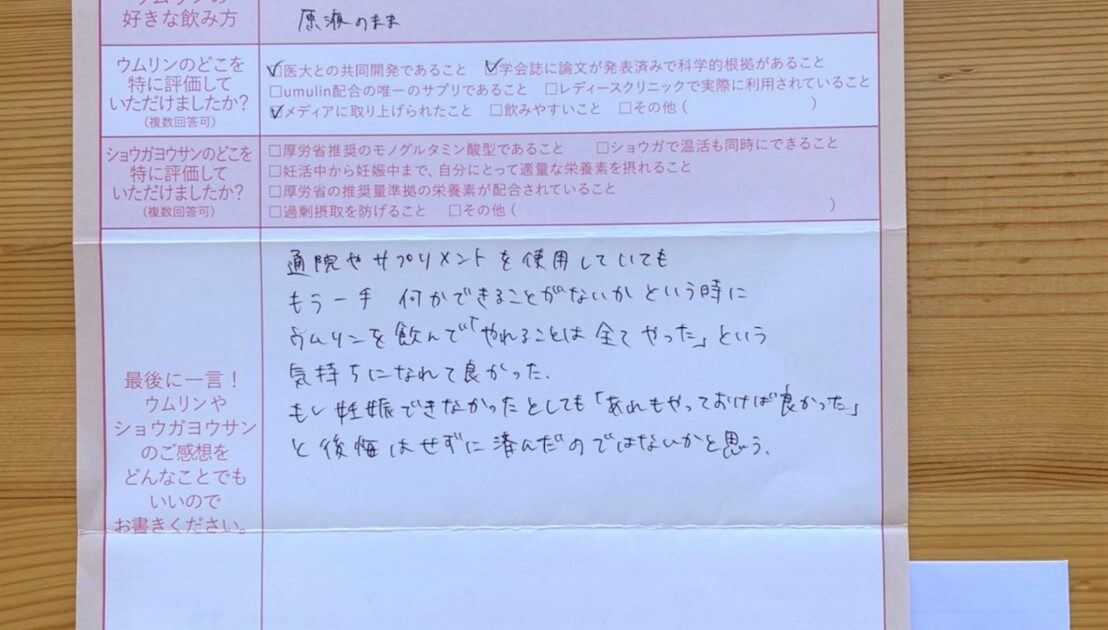 ウムリンの
好きな飲み方
原液のまま
ウムリンのどこを
特に評価して
いただけましたか?
(複数回答可)
☑医大との共同開発であること ☑学会誌に論文が発表済みで科学的根拠があること
□umulin配合の唯一のサプリであること □レディースクリニックで実際に利用されていること
☑メディアに取り上げられたこと □飲みやすいこと □その他( )
ショウガヨウサンのどこを
特に評価して
いただけましたか?
(複数回答可)
□厚労省推奨のモノグルタミン酸型であること □ショウガで温活も同時にできること
□妊活中から妊娠中まで、自分にとって適量な栄養素を摂れること
□厚労省の推奨量準拠の栄養素が配合されていること
□過剰摂取を防げること □その他( )
最後に一言!
ウムリンや
ショウガヨウサン
のご感想を
どんなことでも
いいので
お書きください。
通院やサプリメントを使用していても
もう一手 何かできることがないかという時に
ウムリンを飲んで「やれることは全てやった」という
気持ちになれて良かった。
もし妊娠できなかったとしても「あれもやっておけば良かった」
と後悔はせずに済んだのではないかと思う。